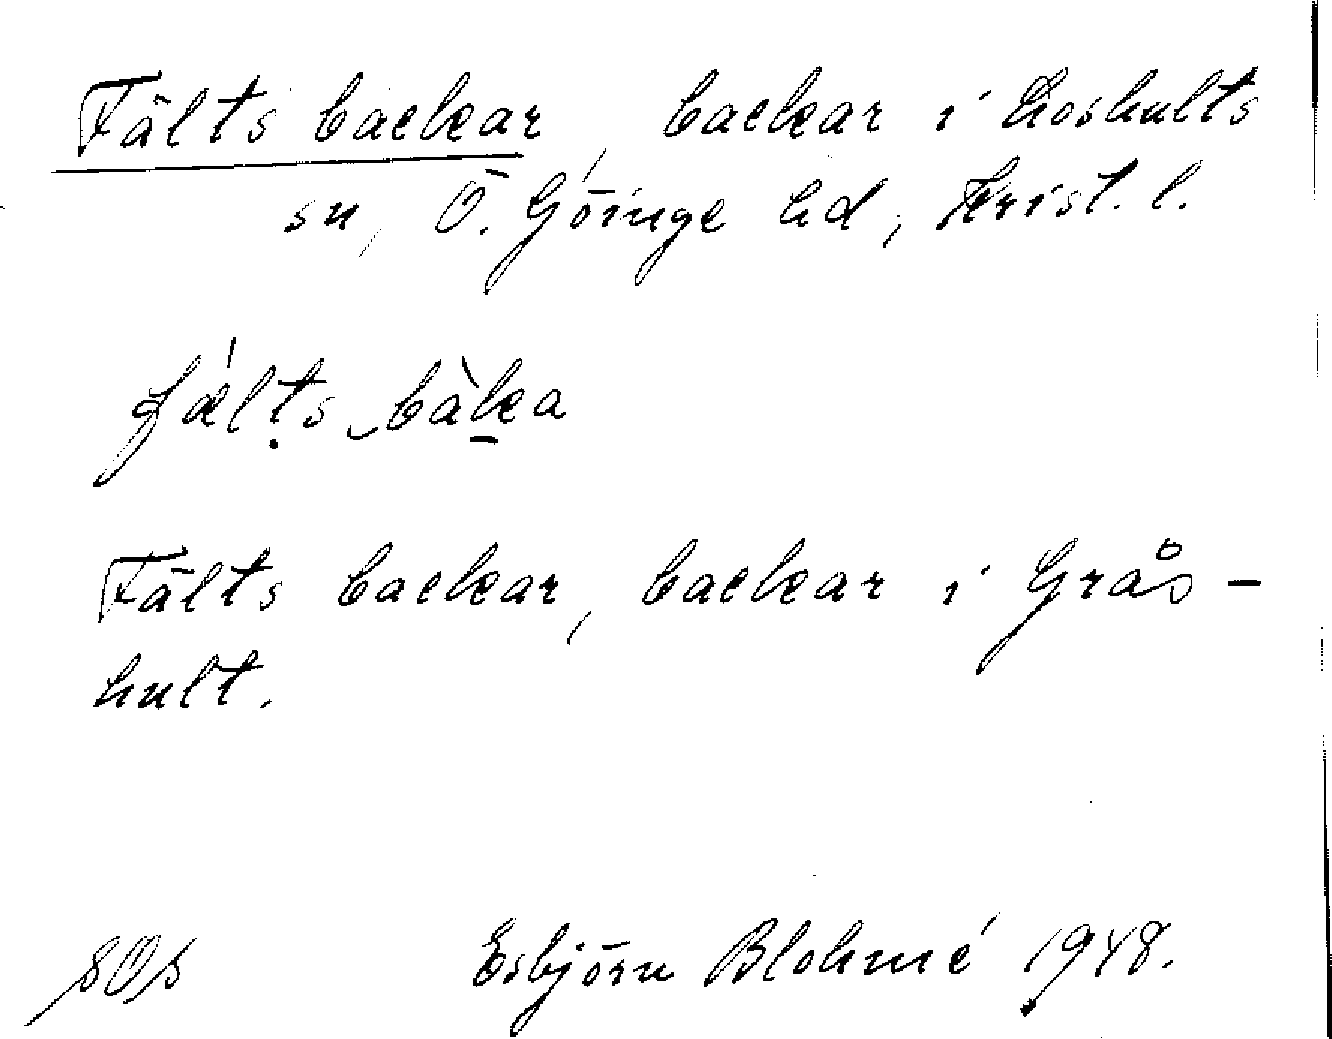 Fälts backar, backar i Loshults
sn, Ö. Göinge hd, Krist. l.
fælṭs bàḵa
Fälts backar, backar i Grås-
hult.
Esbjörn Blohmé 1948.